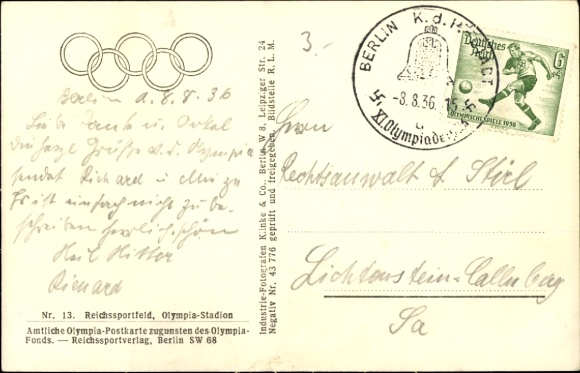 Berlin d. 8.8.36
Liebe Tante u. Onkel
die herzl. Grüße v. d. Olympia
sendet Richard u.
Es ist einfach nicht zu be-
schreiben herrlich schön
Heil Hitler
Richard
Nr. 13. Reichssportfeld, Olympia-Stadion
Amtliche Olympia-Postkarte zugunsten des Olympia-
Fonds. — Reichssportverlag, Berlin SW 68
Industrie-Fotografen Klinke & Co., Berlin W 8, Leipziger Str. 24
Negativ Nr. 43 776 geprüft und freigegeben. Bildstelle R. L. M.
3.-
BERLIN
-8.8.36. 15
XI. Olympiade
Deutsches
Reich
6
OLYMPISCHE SPIELE 1936
Herrn
Rechtsanwalt
Lichtenstein-Callnberg
Sa